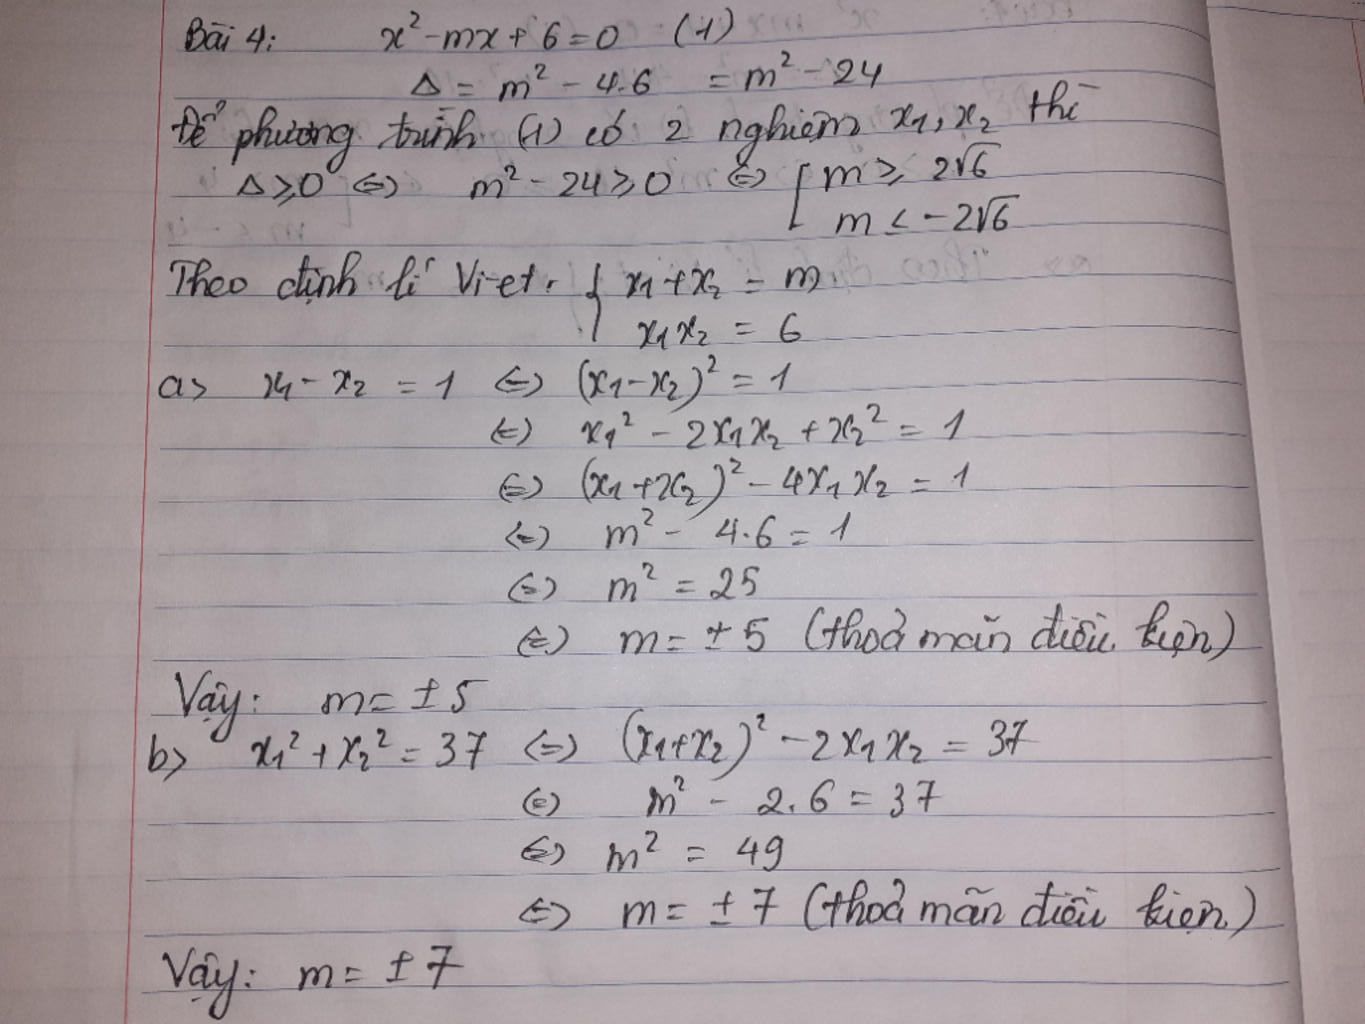 Bài 4: x² - mx + 6 = 0 (1)
Δ = m² - 4.6 = m² - 24
Để phương trình (1) có 2 nghiệm x₁, x₂ thì
Δ ≥ 0 ⇔ m² - 24 ≥ 0 ⇔ [ m ≥ 2√6
m < -2√6
Theo định lí Vi-et. { x₁ + x₂ = m
x₁x₂ = 6
a> x₁ - x₂ = 1 ⇔ (x₁ - x₂)² = 1
⇔ x₁² - 2x₁x₂ + x₂² = 1
⇔ (x₁ + x₂)² - 4x₁x₂ = 1
⇔ m² - 4.6 = 1
⇔ m² = 25
⇔ m = ± 5 (thoả mãn điều kiện)
Vậy: m = ± 5
b> x₁² + x₂² = 37 ⇔ (x₁ + x₂)² - 2x₁x₂ = 37
⇔ m² - 2.6 = 37
⇔ m² = 49
⇔ m = ± 7 (thoả mãn điều kiện)
Vậy: m = ± 7